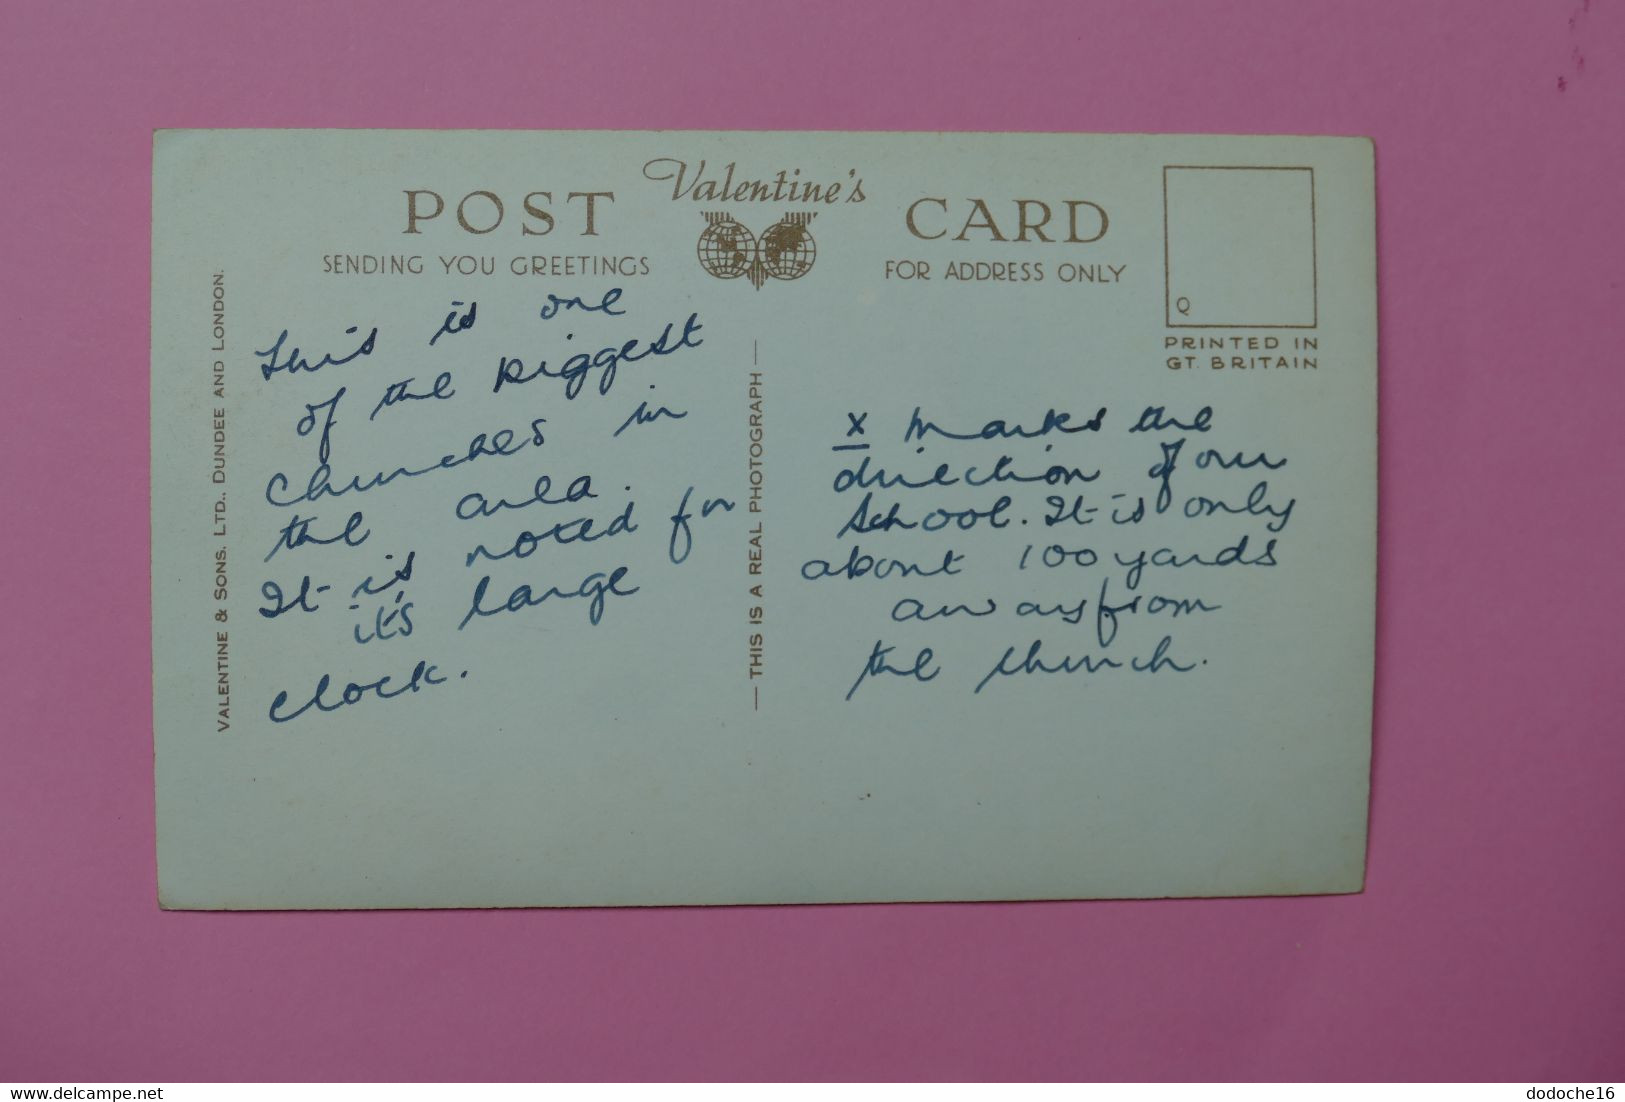 Valentine's
POST CARD
SENDING YOU GREETINGS
FOR ADDRESS ONLY
Q
PRINTED IN
GT. BRITAIN
VALENTINE & SONS. LTD., DUNDEE AND LONDON.
This is one
of the biggest
churches in
the area.
It is noted for
it's large
clock.
THIS IS A REAL PHOTOGRAPH
x marks the
direction of our
school. It is only
about 100 yards
away from
the church.
dodoche16